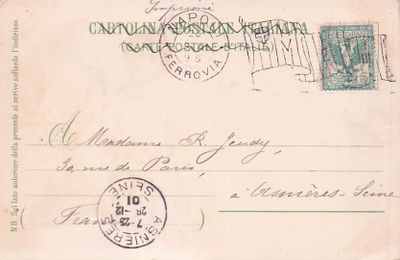 Imprimés
CARTOLINA POSTALE ITALIANA
(CARTE POSTALE D'ITALIE)
NAPOLI
9 S
FERROVIA
A Madame R. Jeudy,
30, rue de Paris,
à Asnières-Seine
France
ASNIERES
SEINE
7 25
26 -12
01
NB. Sul lato anteriore della presente si scrive soltanto l'indirizzo.